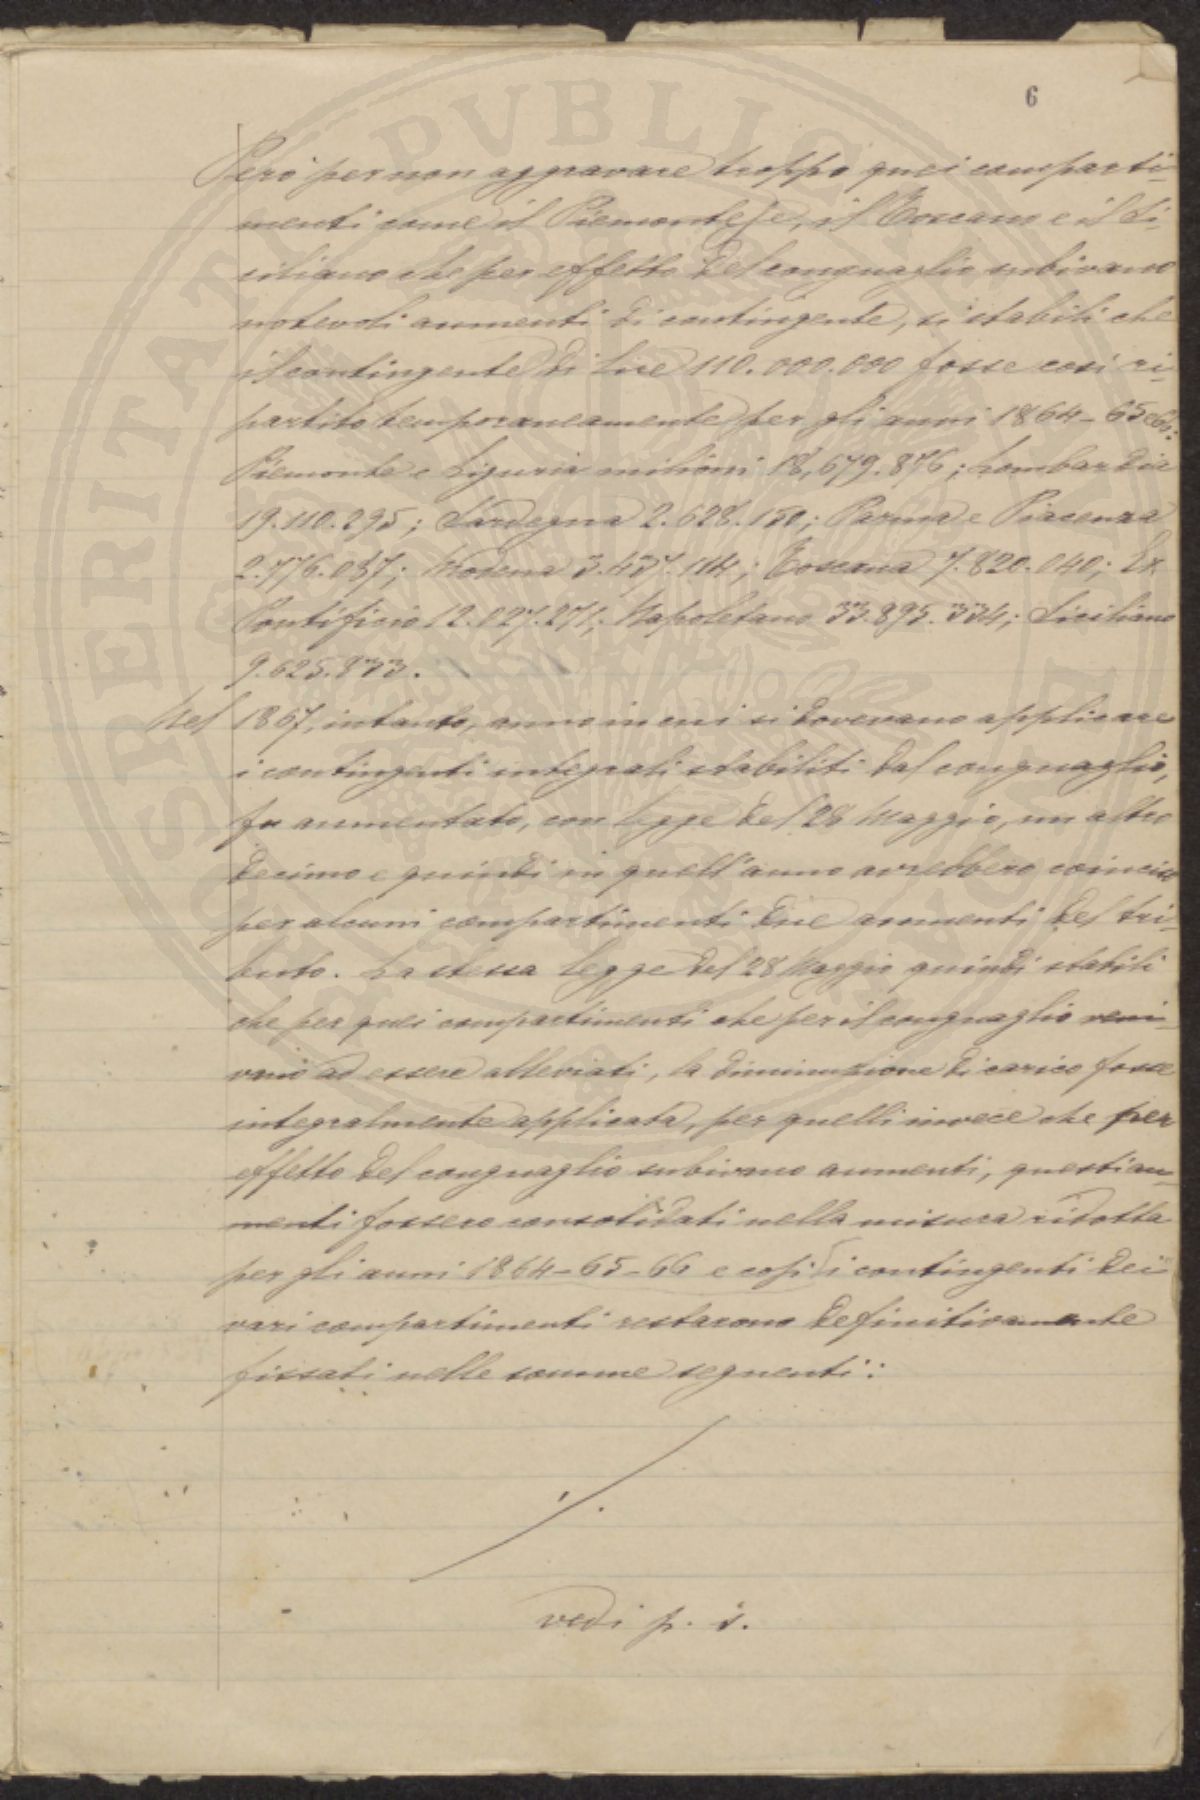 6
Però per non aggravare troppo quei comparti-
menti come il Piemontese, il Toscano e il Si-
ciliano che per effetto del conguaglio subivano
notevoli aumenti di contingente, si stabilì che
il contingente di Lire 110.000.000 fosse così ri-
partito temporaneamente per gli anni 1864-65 e 66:
Piemonte e Liguria milioni 18,679.876; Lombardia
19.110.295; Sardegna 2.628.150; Parma e Piacenza
2.776.037; Modena Toscana 7.820.040; Ex
Pontificio 12.027.271; Napoletano 33.895.334; Siciliano
9.625.833.
Nel 1867, intanto, anno in cui si dovevano applicare
i contingenti integrali stabiliti dal conguaglio,
fu aumentato, con legge del 28 Maggio, un altro
decimo e quindi in quell'anno avrebbero coinciso
per alcuni compartimenti due aumenti del tri-
buto. La stessa legge del 28 Maggio quindi stabilì
che per quei compartimenti che per il conguaglio veni-
vano ad essere alleviati, la diminuzione di carico fosse
integralmente applicata, per quelli invece che per
effetto del conguaglio subivano aumenti, questi au-
menti fossero consolidati nella misura ridotta
per gli anni 1864-65-66 e così i contingenti dei
vari compartimenti restarono definitivamente
fissati nelle somme seguenti:
./.
vedi p. s.
PVBLICAE
VERITATI